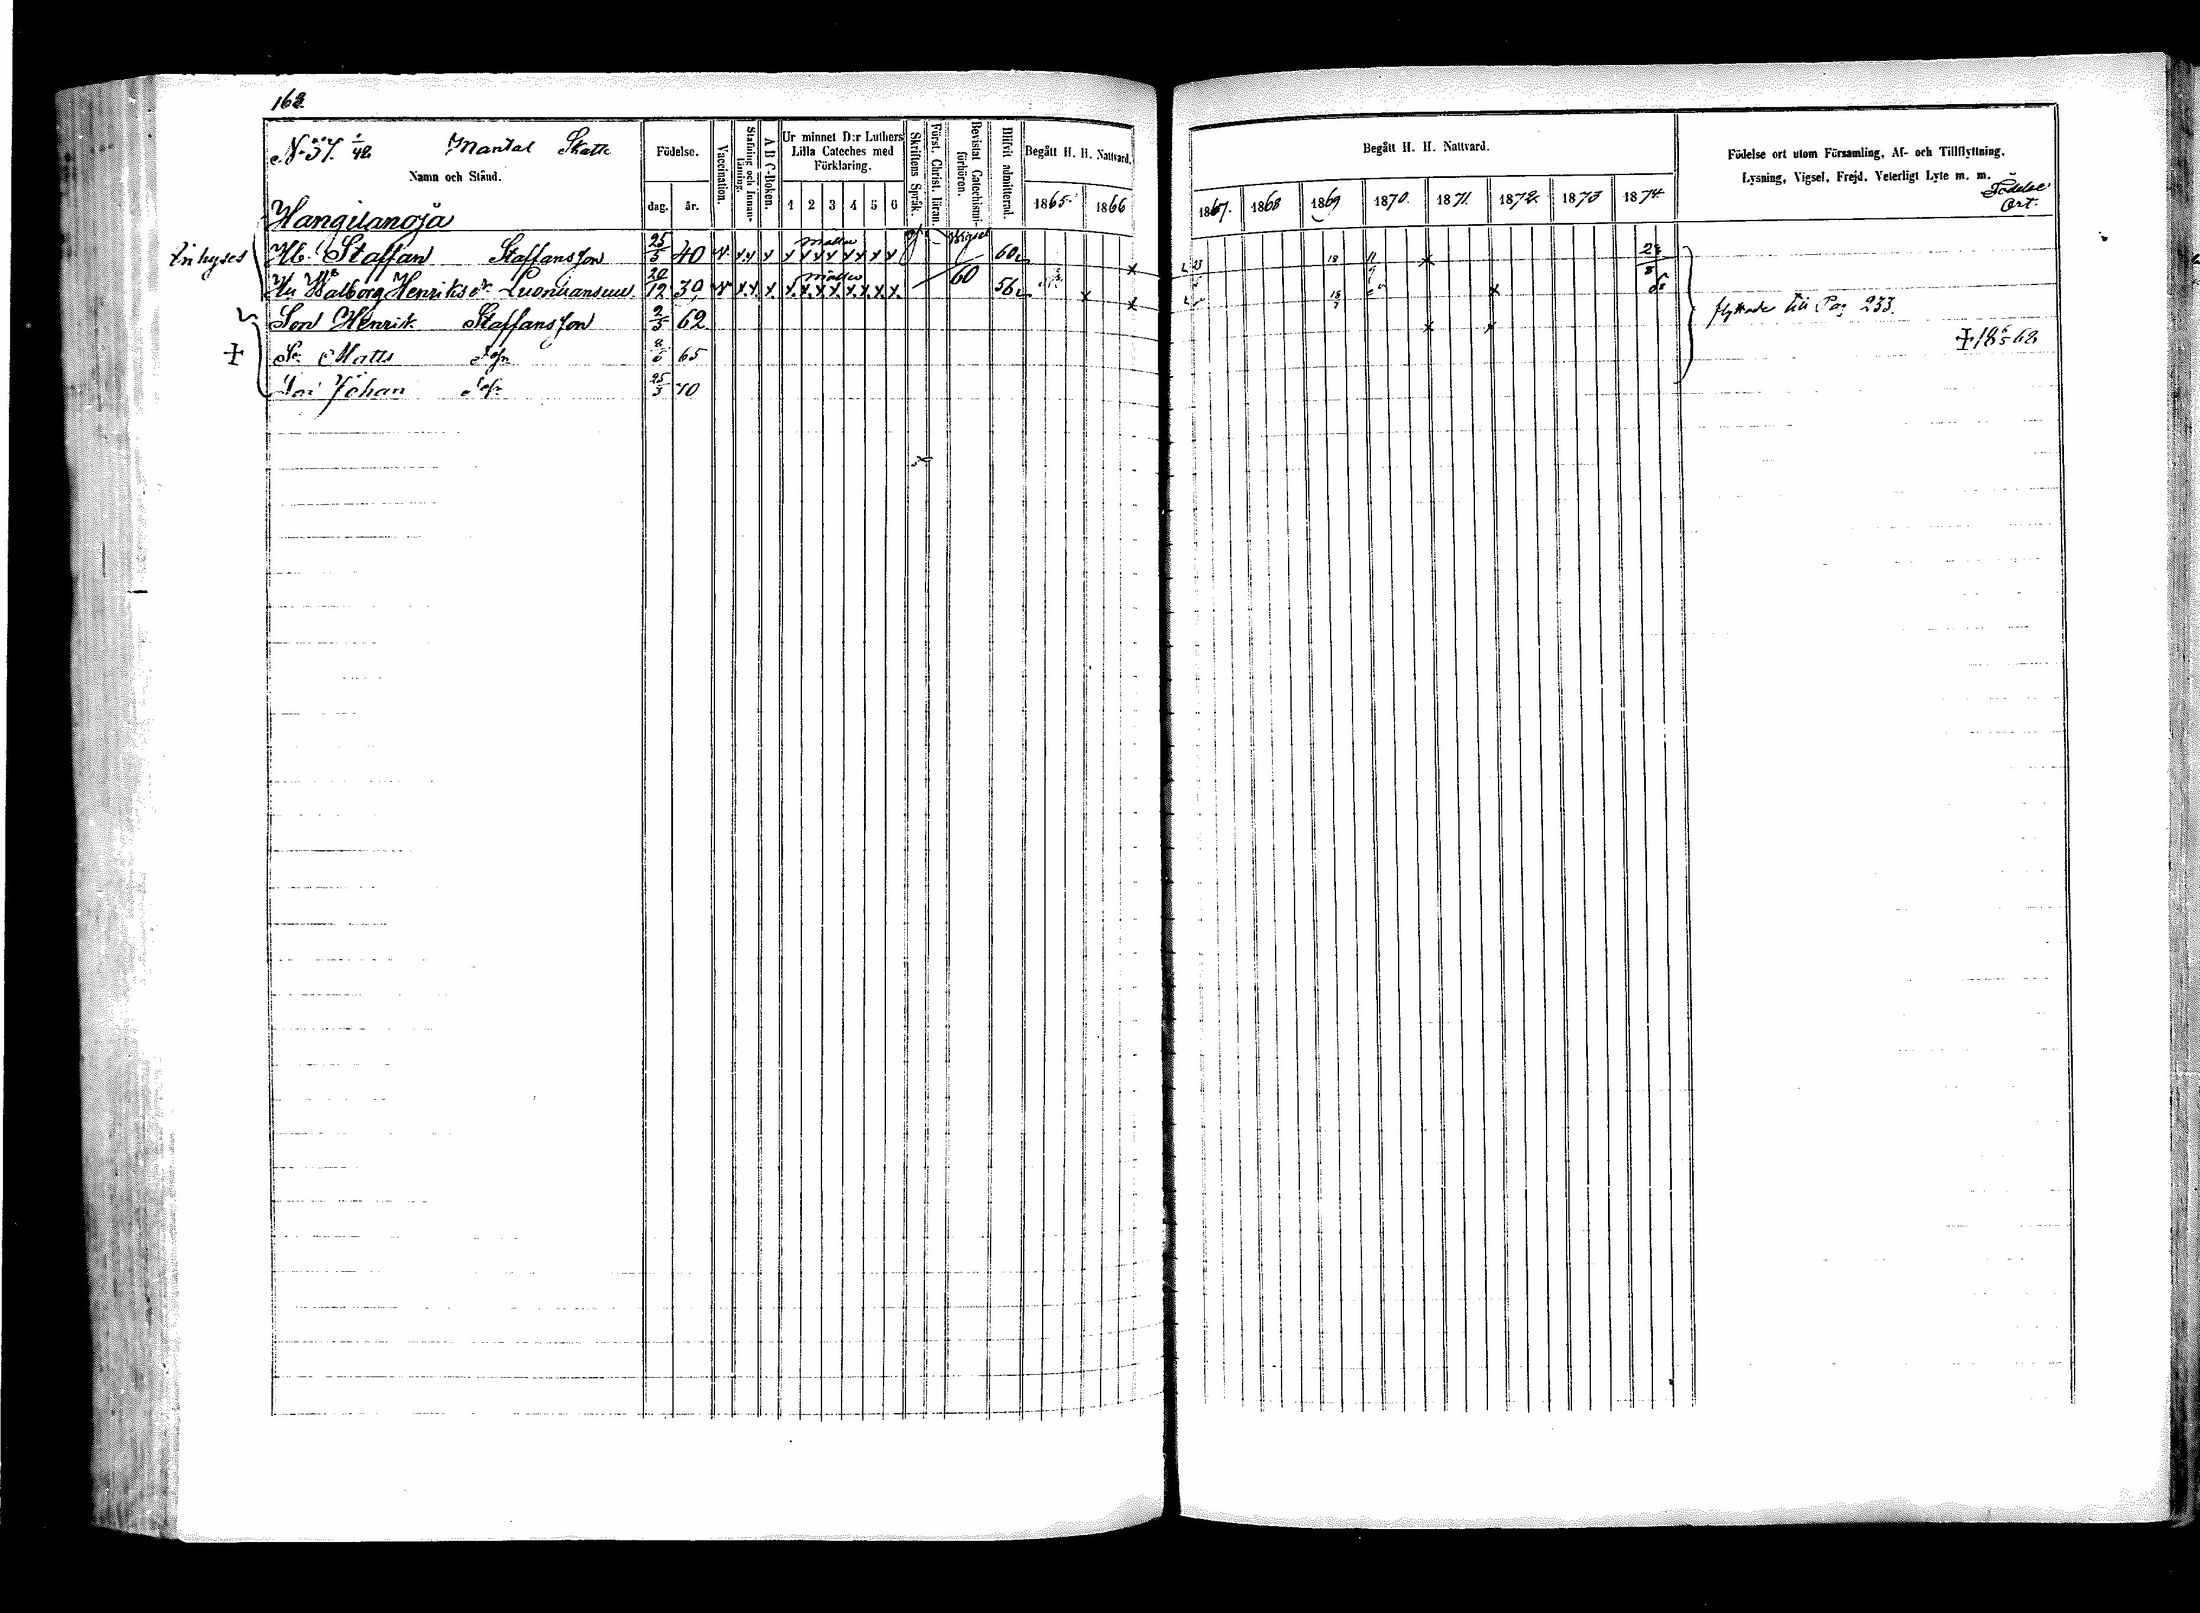 168.
No 37. 1/42 Mantal Skatte
Namn och Stånd.
Födelse.
dag. år.
Vaccination.
Stafning och Innanläsning.
A B C-Boken.
Ur minnet D:r Luthers Lilla Cateches med Förklaring.
1 2 3 4 5 6
Skriftens Språk.
Först. Christ. läran.
Bevistat Catechismi-förhören.
Blifvit admitterad.
Begått H. H. Nattvard.
1865. 1866
Begått H. H. Nattvard.
1867. 1868 1869 1870. 1871. 1872. 1873 1874.
Födelse ort utom Församling, Af- och Tillflyttning,
Lysning, Vigsel, Frejd, Veterligt Lyte m. m.
Födelse Ort.
Hangilanoja
Inhyses
Staffan Staffansson 25/5 40 v x x x x x x x x x Vigsel 60
Hu Walborg Henriksdr 20/12 30 v x x x x x x x x x 60 56
Son Henrik Staffansson 2/3 62
So Matts 65
Son Johan 25/3 70
flyttade till Pag 233.